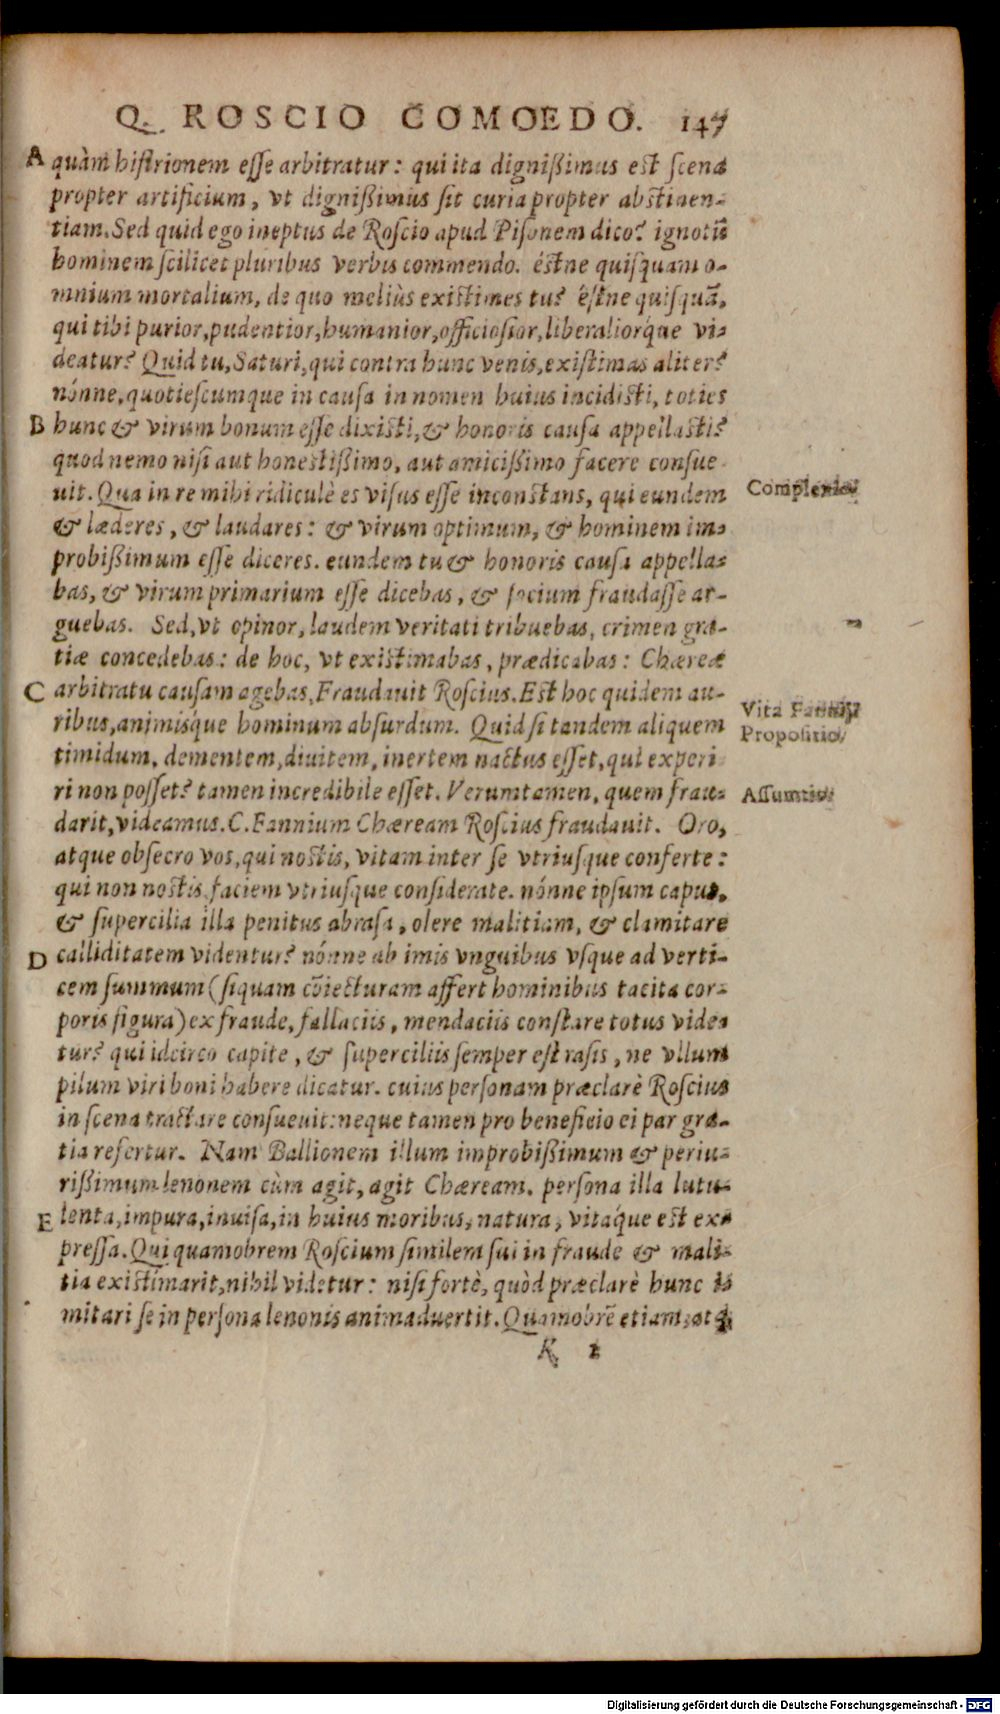 Q. ROSCIO COMOEDO. 147
A quàm histrionem esse arbitratur: qui ita dignißimus est scena
propter artificium, vt dignißimus sit curia propter abstinen-
tiam. Sed quid ego ineptus de Roscio apud Pisonem dico? ignotū
hominem scilicet pluribus verbis commendo. éstne quisquam o-
mnium mortalium, de quo meliùs existimes tu? éstne quisquā,
qui tibi purior, pudentior, humanior, officiosior, liberaliorque vi-
deatur? Quid tu, Saturi, qui contra hunc venis, existimas aliter?
nónne, quotiescumque in causa in nomen huius incidisti, toties
B hunc & virum bonum esse dixisti, & honoris causa appellasti?
quod nemo nisi aut honestißimo, aut amicißimo facere consue
uit. Qua in re mihi ridiculè es visus esse inconstans, qui eundem
Complexio
& læderes, & laudares: & virum optimum, & hominem im-
probißimum esse diceres. eundem tu & honoris causa appella-
bas, & virum primarium esse dicebas, & socium fraudasse ar-
guebas. Sed, vt opinor, laudem veritati tribuebas, crimen gra-
tiæ concedebas: de hoc, vt existimabas, prædicabas: Chæreæ
C arbitratu causam agebas. Fraudauit Roscius. Est hoc quidem au-
ribus, animisque hominum absurdum. Quid si tandem aliquem
Vita Fannij
Propositio
timidum, dementem, diuitem, inertem nactus esset, qui experi
ri non posset? tamen incredibile esset. Verumtamen, quem frau-
Assumtio
darit, videamus. C. Fannium Chæream Roscius fraudauit. Oro,
atque obsecro vos, qui nostis, vitam inter se vtriusque conferte:
qui non nostis, faciem vtriusque considerate. nónne ipsum caput,
& supercilia illa penitus abrasa, olere malitiam, & clamitare
D calliditatem videntur? nónne ab imis vnguibus vsque ad verti-
cem summum (siquam cōiecturam affert hominibus tacita cor-
poris figura) ex fraude, fallaciis, mendaciis constare totus videa
tur? qui idcirco capite, & superciliis semper est rasis, ne vllum
pilum viri boni habere dicatur. cuius personam præclarè Roscius
in scena tractare consueuit: neque tamen pro beneficio ei par gra-
tia refertur. Nam Ballionem illum improbißimum & periu-
rißimum lenonem cùm agit, agit Chæream. persona illa lutu-
E lenta, impura, inuisa, in huius moribus, natura, vitáque est ex-
pressa. Qui quamobrem Roscium similem sui in fraude & mali-
tia existimarit, nihil videtur: nisi fortè, quòd præclarè hunc i-
mitari se in persona lenonis animaduertit. Quamobrē etiam, atq;
K 2
Digitalisierung gefördert durch die Deutsche Forschungsgemeinschaft - DFG